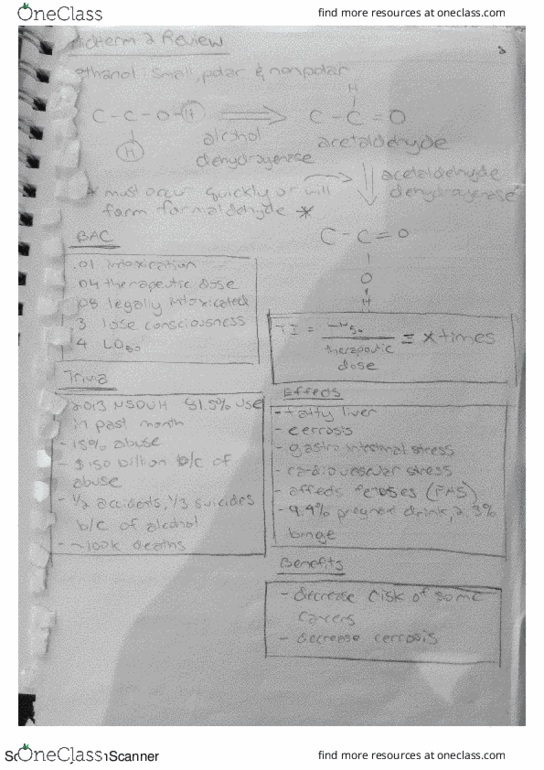 OneClass
find more resources at oneclass.com
Midterm 2 Review
ethanol: small, polar & nonpolar
H
C - C - O - H
C - C = O
H
alcohol
dehydrogenase
acetaldehyde
acetaldehyde
dehydrogenase
* must occur quickly or will
form formaldehyde *
C - C = O
O
H
BAC
.01 intoxication
.04 therapeutic dose
.08 legally intoxicated
.3 lose consciousness
.4 LD50
TI =
therapeutic
dose
= x times
Trivia
- 2013 NSDUH 51.5% use
in past month
- 15% abuse
- $150 billion b/c of
abuse
- 1/2 accidents, 1/3 suicides
b/c of alcohol
- ~100k deaths
Effects
- fatty liver
- cerrosis
- gastro intestinal stress
- cardiovescular stress
- affects fetuses (FAS)
- 9.4% pregnant drink, 2.3%
binge
Benefits
- decrease risk of some
cancers
- decrease cerrosis
OneClass
Scanner
find more resources at oneclass.com